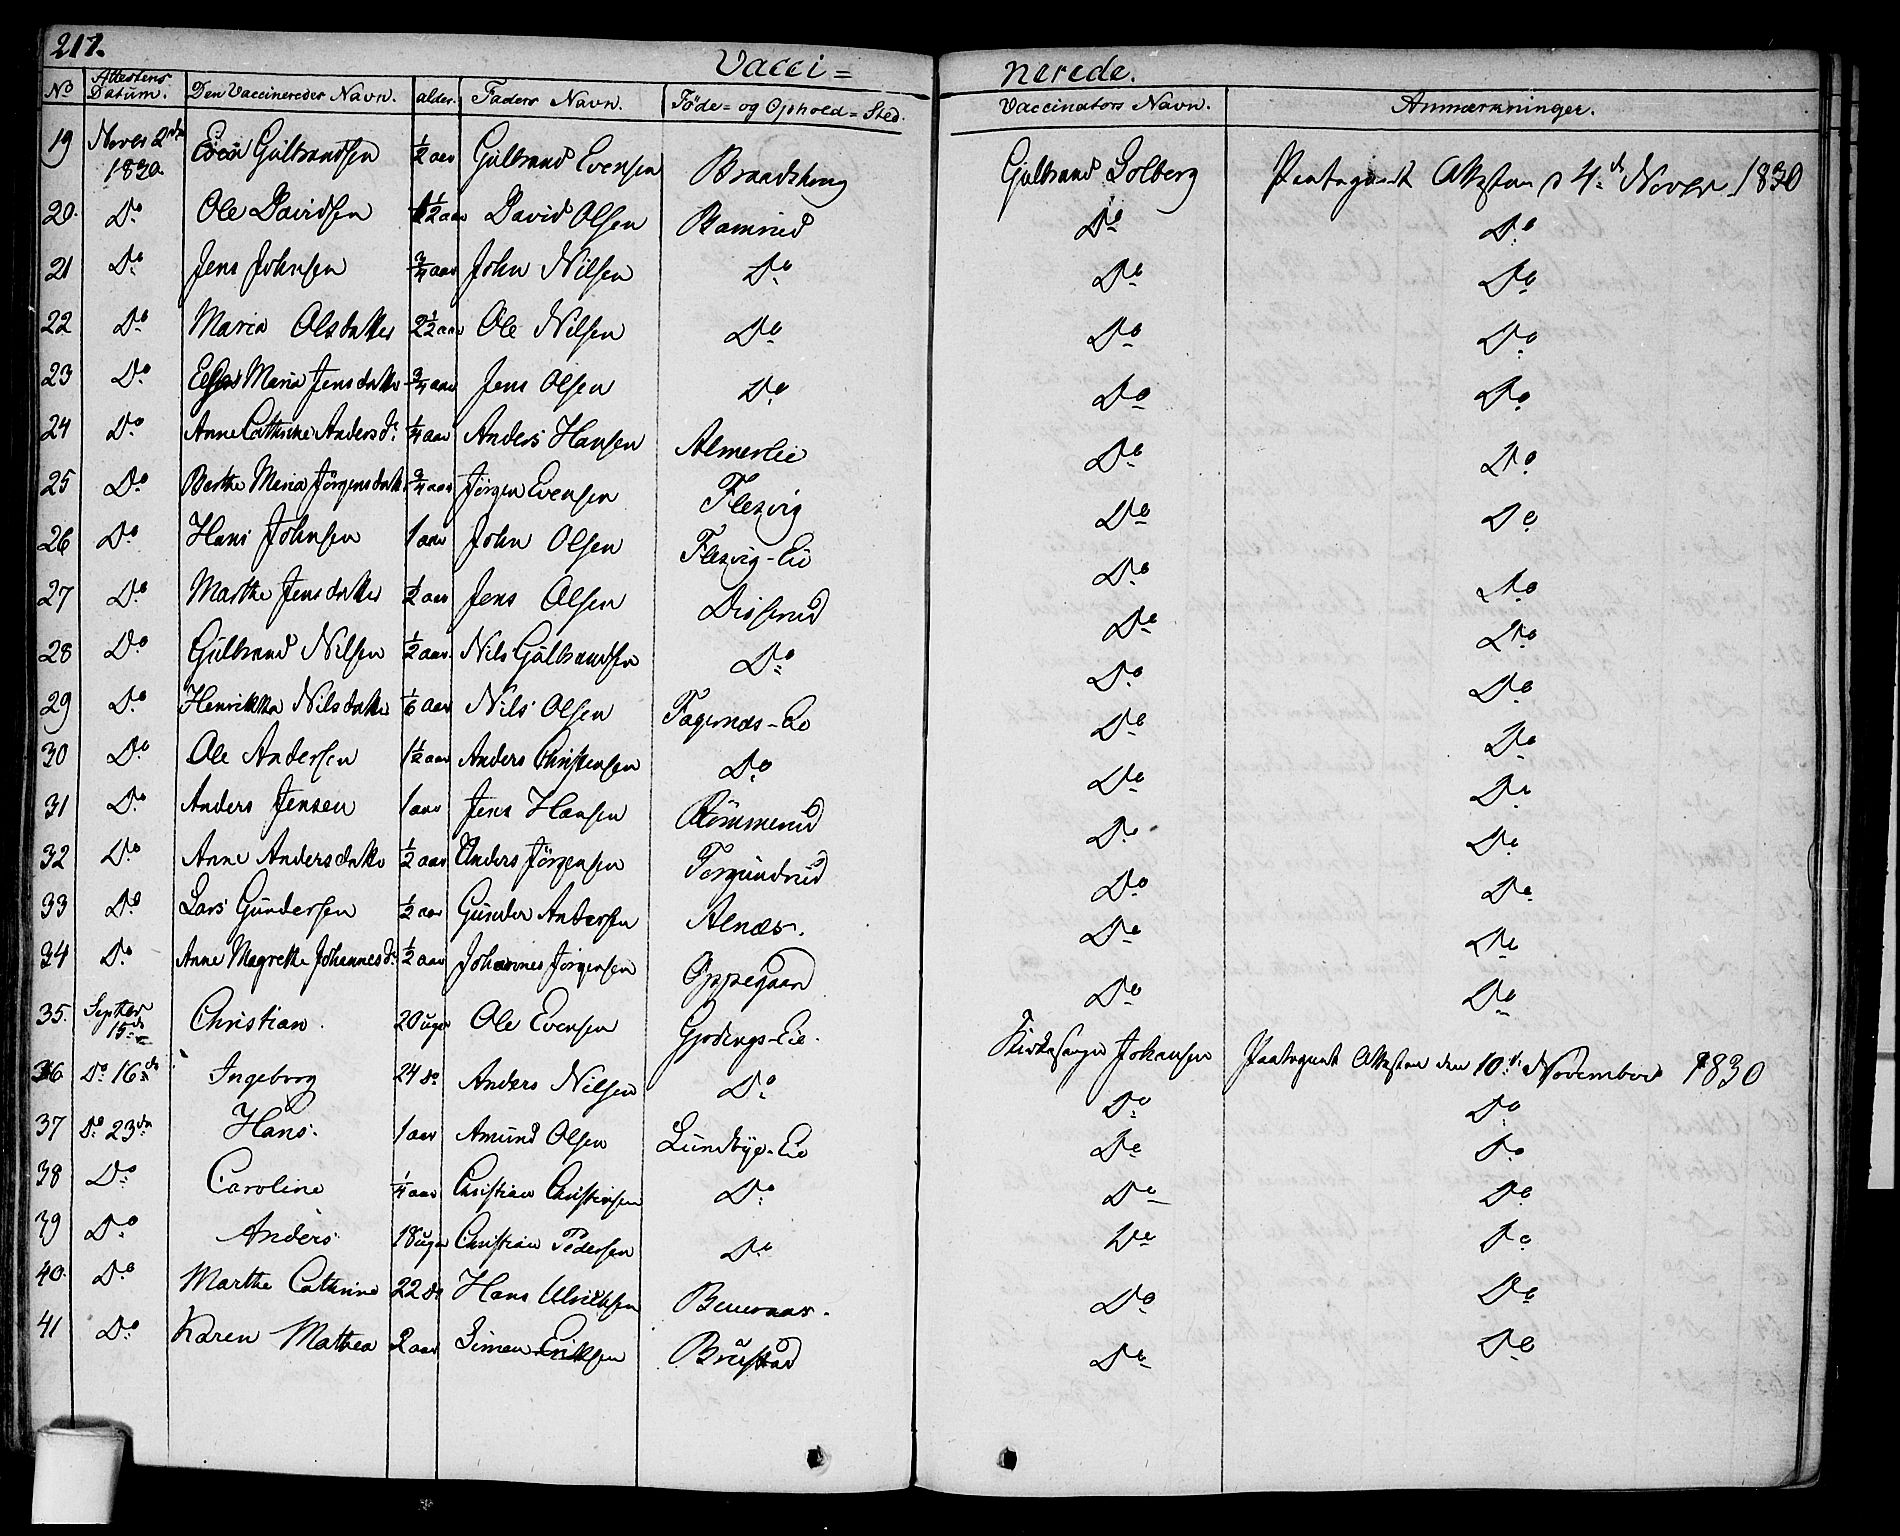 217.
Vacci= nerede.
No Attestens Datum. Den Vaccineredes Navn. alder. Faders Navn. Föde= og Ophold=Sted. Vaccinators Navn. Anmærkninger.
19 Novbr 2den 1830. Even Gulbrandsen ½ aar Gulbrand Evensen Gulbrand Solberg 4de Novbr. 1830
20. Do Ole Davidsen ½ aar David Olsen Bamrud Do Do
21 Do Jens Johnsen ¾ aar John Nilsen Do Do Do
22 Do Maria Olsdatter 2½ aar Ole Nilsen Do Do Do
23 Do Maria Jensdatter ¾ aar Jens Olsen Do Do Do
24 Do Anne Cathrine Andersdr. ¼ aar Anders Hansen Almerlie Do Do
25 Do Berthe Maria Jörgensdatter ¾ aar Jörgen Evensen Flesvig Do Do
26 Do Hans Johnsen 1 aar John Olsen Flesvig-Eie Do Do
27 Do Marthe Jensdatter ½ aar Jens Olsen Disserud Do Do
28 Do Gulbrand Nilsen ½ aar Nils Gulbrandsen Do Do Do
29 Do Henrikka Nilsdatter 1/6 aar Nils Olsen Fagernæs-Eie Do Do
30 Do Ole Andersen 1½ aar Anders Christensen Do Do Do
31 Do Anders Jensen 1 aar Jens Hansen Römmerud Do Do
32 Do Anne Andersdatter ½ aar Anders Jörgensen Torgundrud Do Do
33 Do Lars Gundersen ½ aar Gunder Andersen Alnæs. Do Do
34 Do Anne Magrethe Johannesdr. ½ aar Johannes Jörgensen Oppegaard Do Do
35. Septbr 15de Christian. 20 uger Ole Evensen Kirkesanger Johansen Paategnet Attesten den 10de November 1830
36 Do 16de Ingeborg 24 do Anders Nilsen Do Do Do
37 Do 23de Hans. 1 aar Amund Olsen Lundbye-Eie Do Do
38 Do Caroline ¼ aar Christian Christensen Do Do Do
39 Do Anders 18 uger Christian Pedersen Do Do Do
40. Do Marthe Cathrine 22 do Hans Ulriksen Do Do
41 Do Karen Mathea 2 aar Simen Eriksen Brustad Do Do